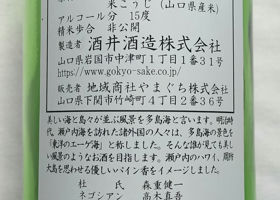 米こうじ（山口県産米）
アルコール分　15度
精米歩合　非公開
製造者　酒井酒造株式会社
山口県岩国市中津町1丁目1番31号
https://www.gokyo-sake.co.jp/
販売者　地域商社やまぐち株式会社
山口県下関市竹崎町4丁目2番36号
美しい海と島々が並ぶ風景を多島海と言います。明治時
代、瀬戸内海を訪れた諸外国の人々は、多島海の景色を
「東洋のエーゲ海」と称しました。そんな誰が見ても美し
い風景のようなお酒を目指します。瀬戸内のハワイ、周防
大島を思わせる優しいパイン香をイメージしました。
杜　氏　森重健一
ネゴシアン　高木直吾